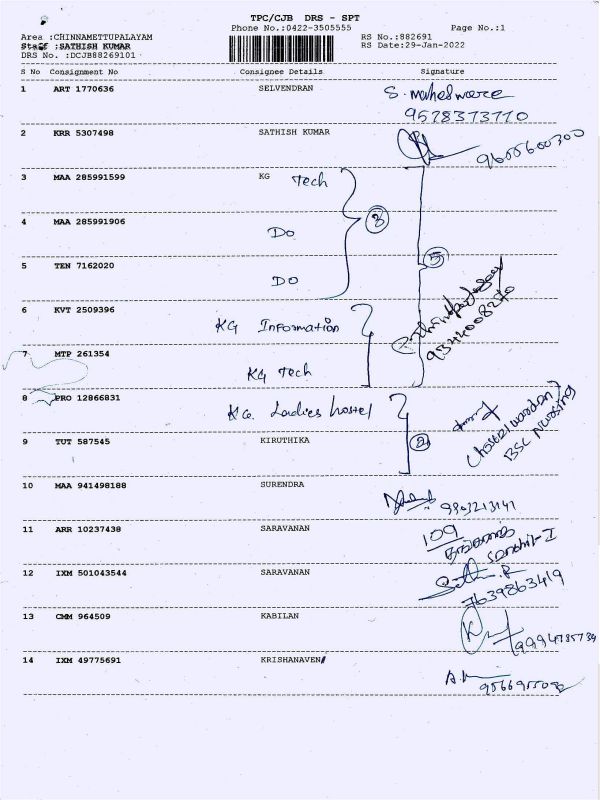 TPC/CJB DRS - SPT
Phone No.:0422-3505555 Page No.:1
Area :CHINNAMETTUPALAYAM RS No.:882691
Staff :SATHISH KUMAR RS Date:29-Jan-2022
DRS No. :DCJB88269101
S No Consignment No Consignee Details Signature
1 ART 1770636 SELVENDRAN S. maheswaree
9578373770
2 KRR 5307498 SATHISH KUMAR 9655600300
3 MAA 285991599 KG Tech
4 MAA 285991906 Do 3
5 TEN 7162020 Do 5
6 KVT 2509396 KG Information
7 MTP 261354 KG Tech
8 PRO 12866831 KG. Ladies hostel
(hostel warden)
BSC Nursing
9 TUT 587545 KIRUTHIKA 2
10 MAA 941498188 SURENDRA
11 ARR 10237438 SARAVANAN 109
12 IXM 501043544 SARAVANAN
7639863419
13 CMM 964509 KABILAN
14 IXM 49775691 KRISHANAVENI